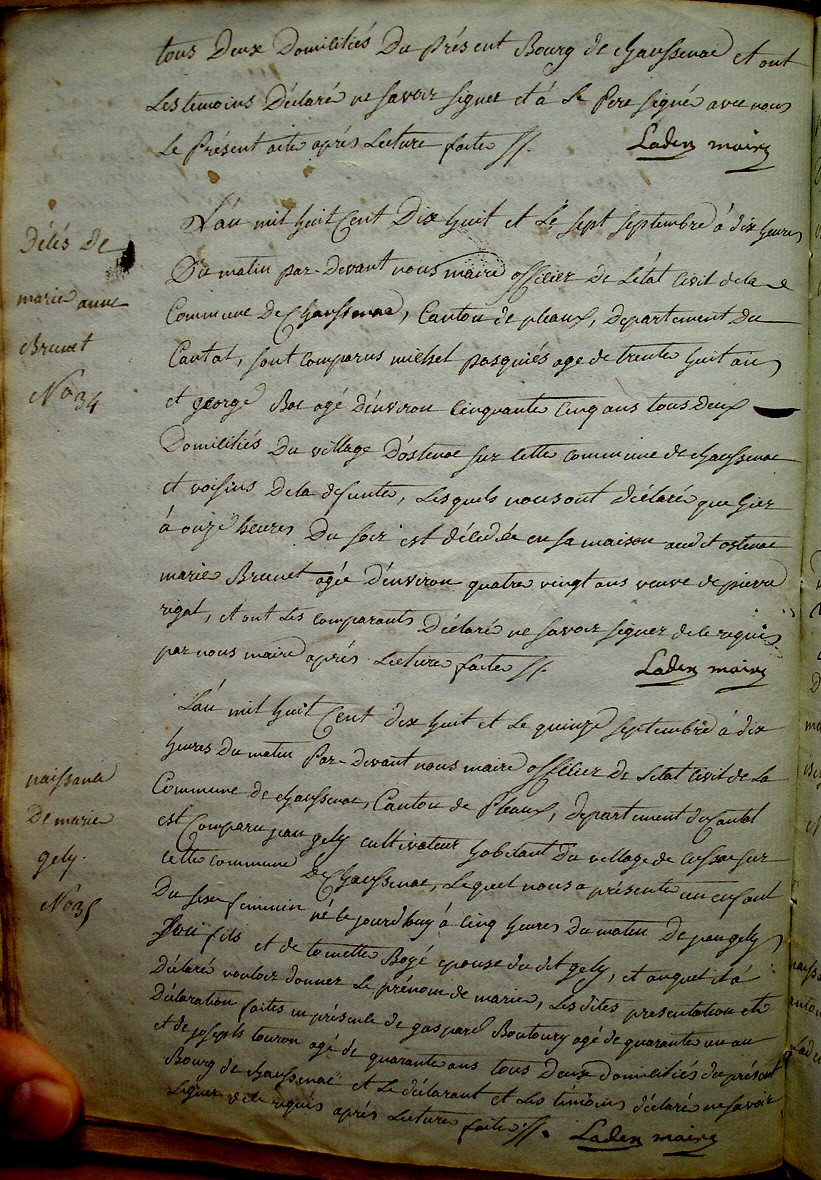 tous Deux Domiciliés Du Présent Bourg de Chaussenac et ont
Les temoins Déclaré ne savoir signer et à Le Pere signé avec nous
Le Présent acte aprés Lecture faite //. Laden maire
Décés de
marie anne
Brunet
No 34
L'an mil huit Cent Dix huit et Le sept septembre à dix heures
Du matin par-Devant nous maire officier De L'état Civil de la
Commune De Chaussenac, Canton de pleaux, Departement du
Cantal, sont comparus michel pasquiés age de trente huit ans
et george Bos agé D'environ Cinquante Cinq ans tous Deux
Domiciliés Du village D'ostenac sur Cette commune de chaussenac
et voisins De la defunte, Lesquels nous ont déclaré que hier
à onze heures Du soir est décédée en sa maison audit ostenac
marie Brunet agée D'environ quatre vingt ans veuve de pierre
rigal, et ont Les comparants Déclaré ne savoir signer de ce requis
par nous maire aprés Lecture faite //. Laden maire
naissance
De marie
gely.
No 35
L'an mil huit Cent dix huit et Le quinze septembre à dix
heures Du matin Par-Devant nous maire officier De L'etat Civil de La
Commune De chaussenac, Canton de Pleaux, departement du Cantal
est Comparu jean gely cultivateur habitant Du village de sur
cette commune De Chaussenac, Lequel nous a présenté un enfant
Du sexe feminin né le jourd'huy à Cinq heures Du matin De jean gely
fils et de tomette Bogé epouse du dit gely, et auquel il à
Déclaré vouloir donner Le prénom de marie, Les dites presentation et
Déclaration faites en présence de gaspard Boutoury agé de quarante un an
et de joseph touron agé de quarante ans tous Deux domiciliés du présent
Bourg de chaussenac et Le déclarant et Les témoins déclaré ne savoir
signer de ce requis aprés Lecture faite //. Laden maire